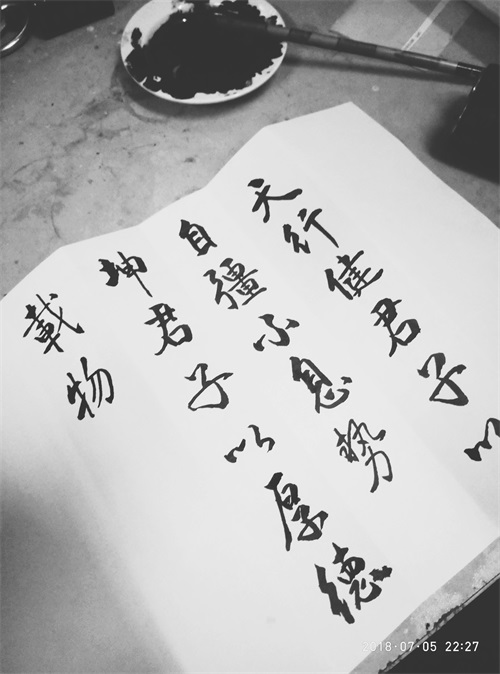 天行健君子以
自彊不息势
坤君子以厚德
載物
2018-07-05 22:27